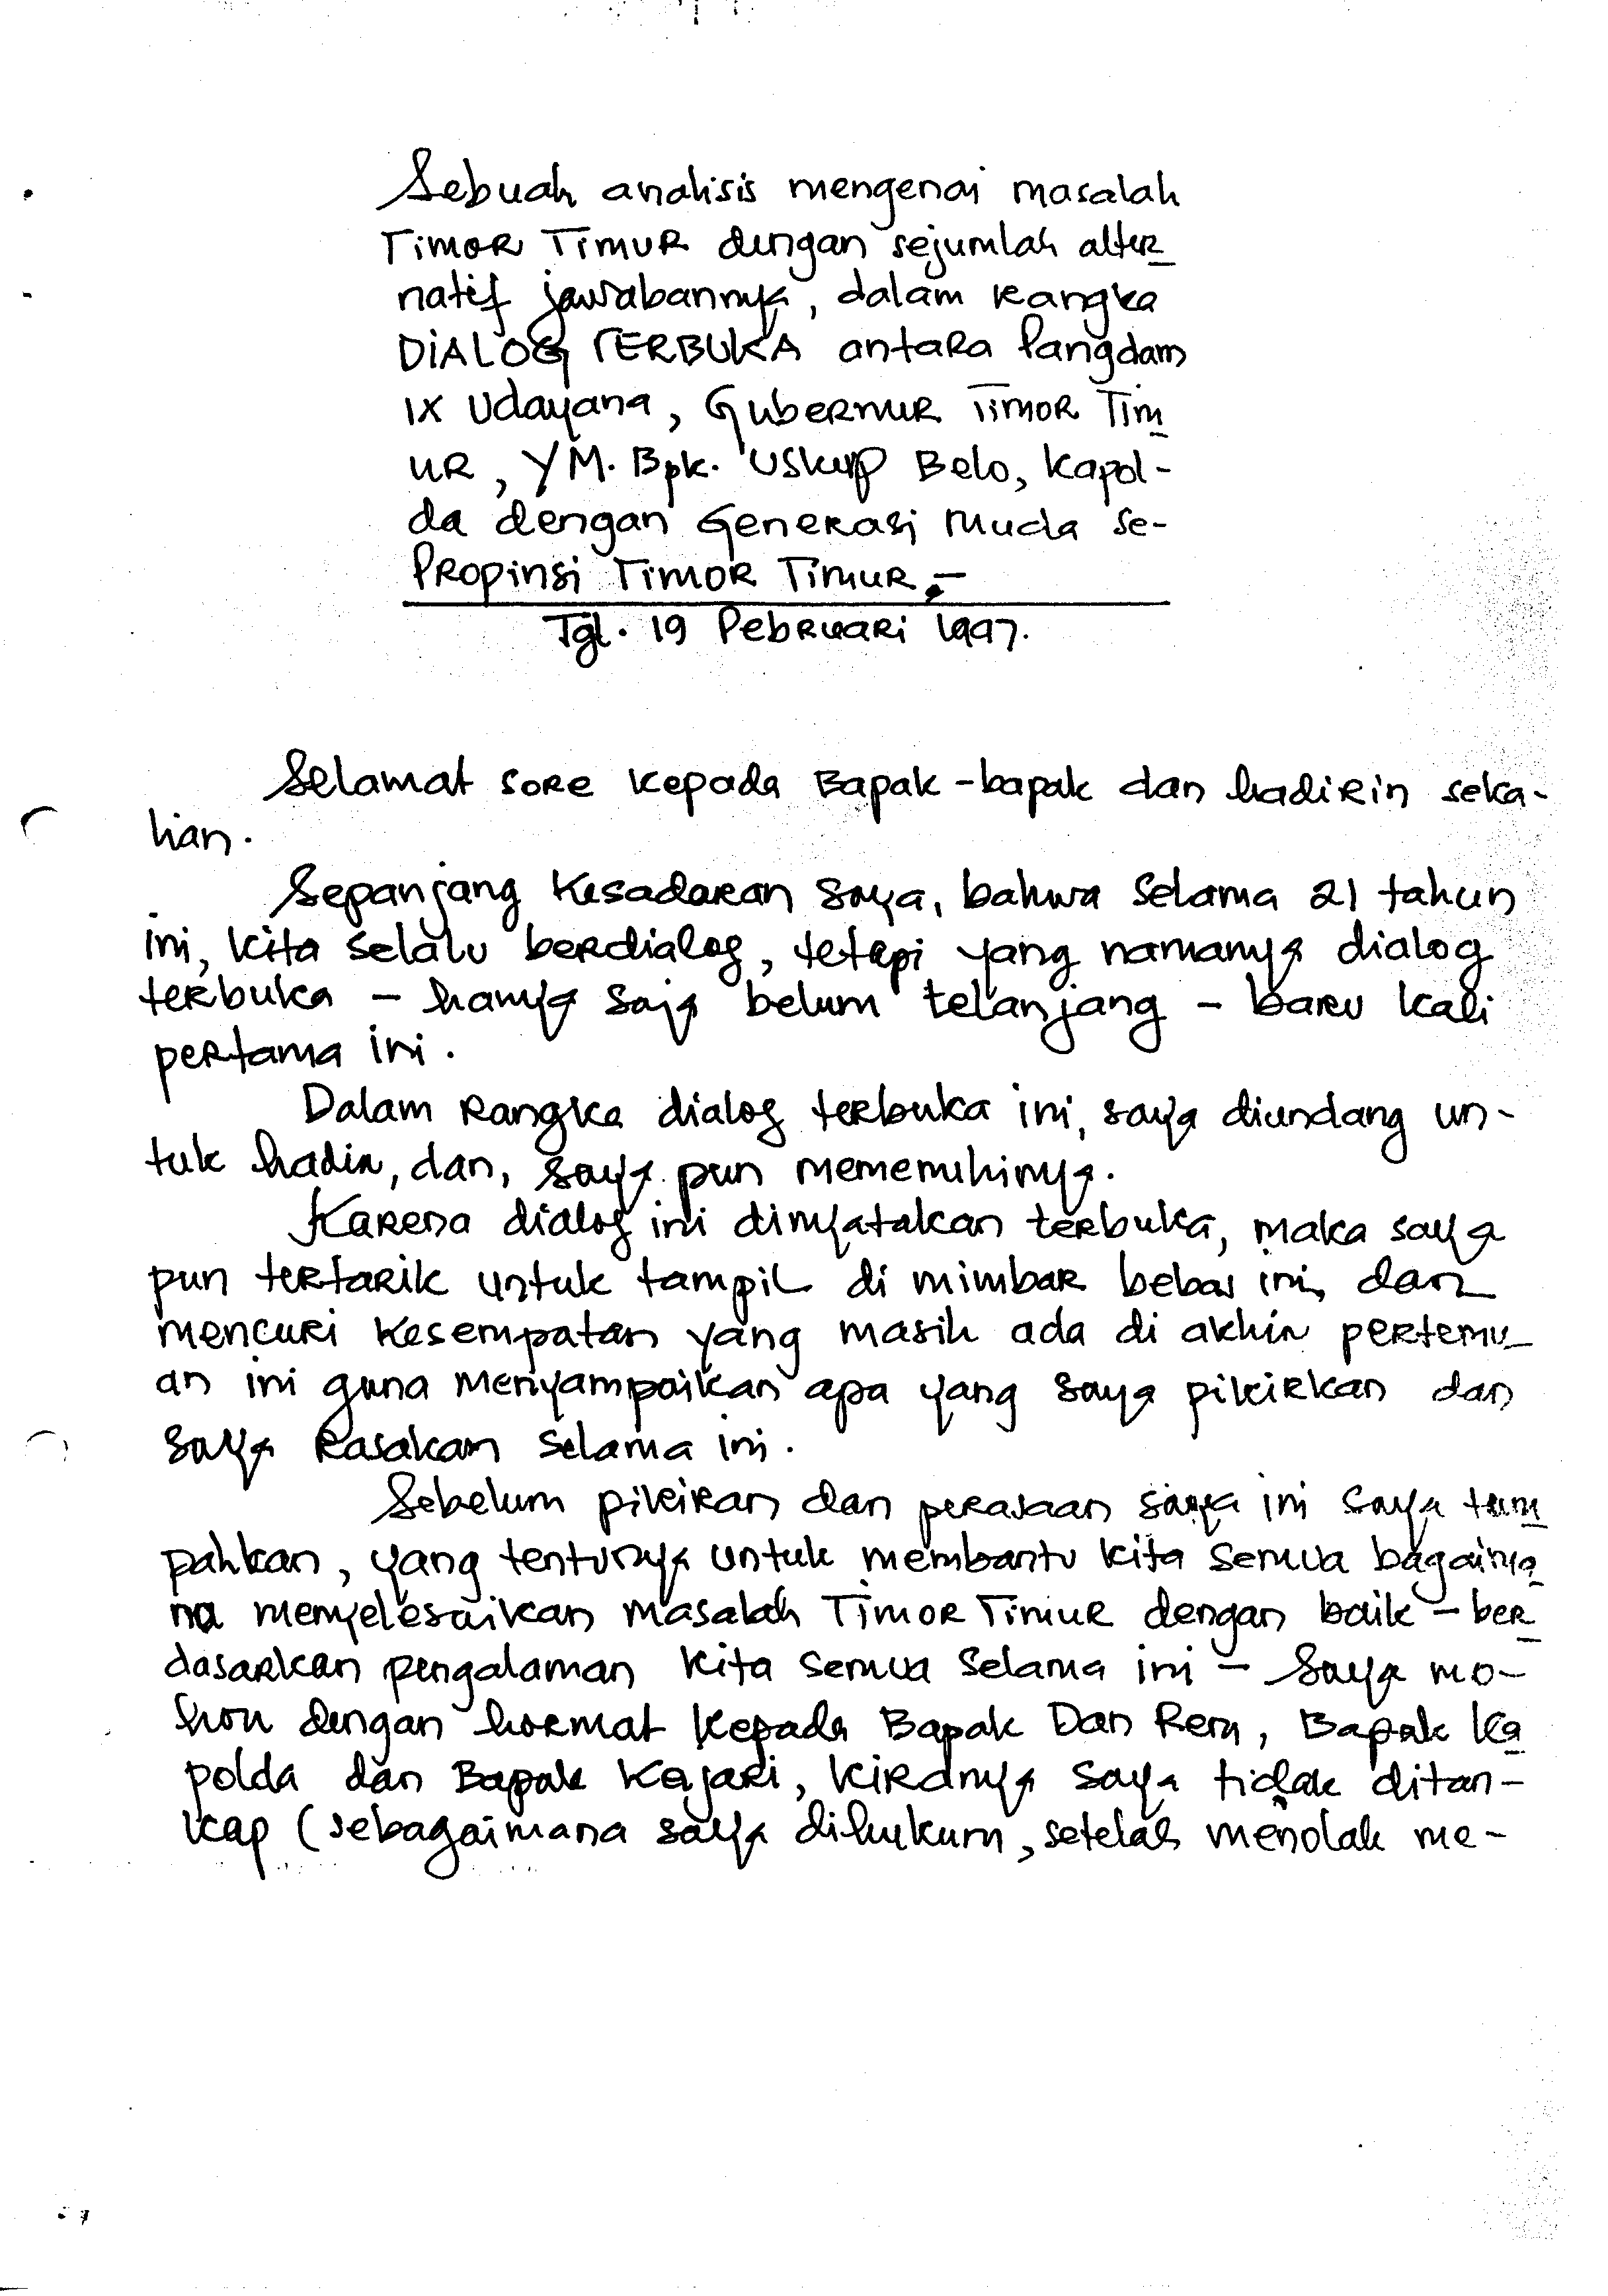 Sebuah analisis mengenai masalah
TIMOR TIMUR dengan sejumlah alter
natif jawabannya, dalam rangka
DIALOG TERBUKA antara Pangdam
IX Udayana, Gubernur TIMOR TIM
UR, YM. Bpk. Uskup Belo, Kapol-
da dengan Generasi Muda se-
PROpinsi TIMOR TIMUR.-
Tgl. 19 Pebruari 1997.
Selamat sore kepada Bapak-bapak dan hadirin seka-
lian.
Sepanjang kesadaran saya, bahwa selama 21 tahun
ini, kita selalu berdialog, tetapi yang namanya dialog
terbuka - hanya saja belum telanjang - baru kali
pertama ini.
Dalam rangka dialog terbuka ini, saya diundang un-
tuk hadir, dan, saya pun memenuhinya.
Karena dialog ini dinyatakan terbuka, maka saya
pun tertarik untuk tampil di mimbar bebas ini, dan
mencuri kesempatan yang masih ada di akhir pertemu-
an ini guna menyampaikan apa yang saya pikirkan dan
saya rasakan selama ini.
Sebelum pikiran dan perasaan saya ini saya tum
pahkan, yang tentunya untuk membantu kita semua bagaima
na menyelesaikan masalah Timor Timur dengan baik - ber
dasarkan pengalaman kita semua selama ini - saya mo-
hon dengan hormat kepada Bapak Dan Rem, Bapak Ka
polda dan Bapak Kajari, kiranya saya tidak ditan-
kap (sebagaimana saya dihukum, setelah menolak me-